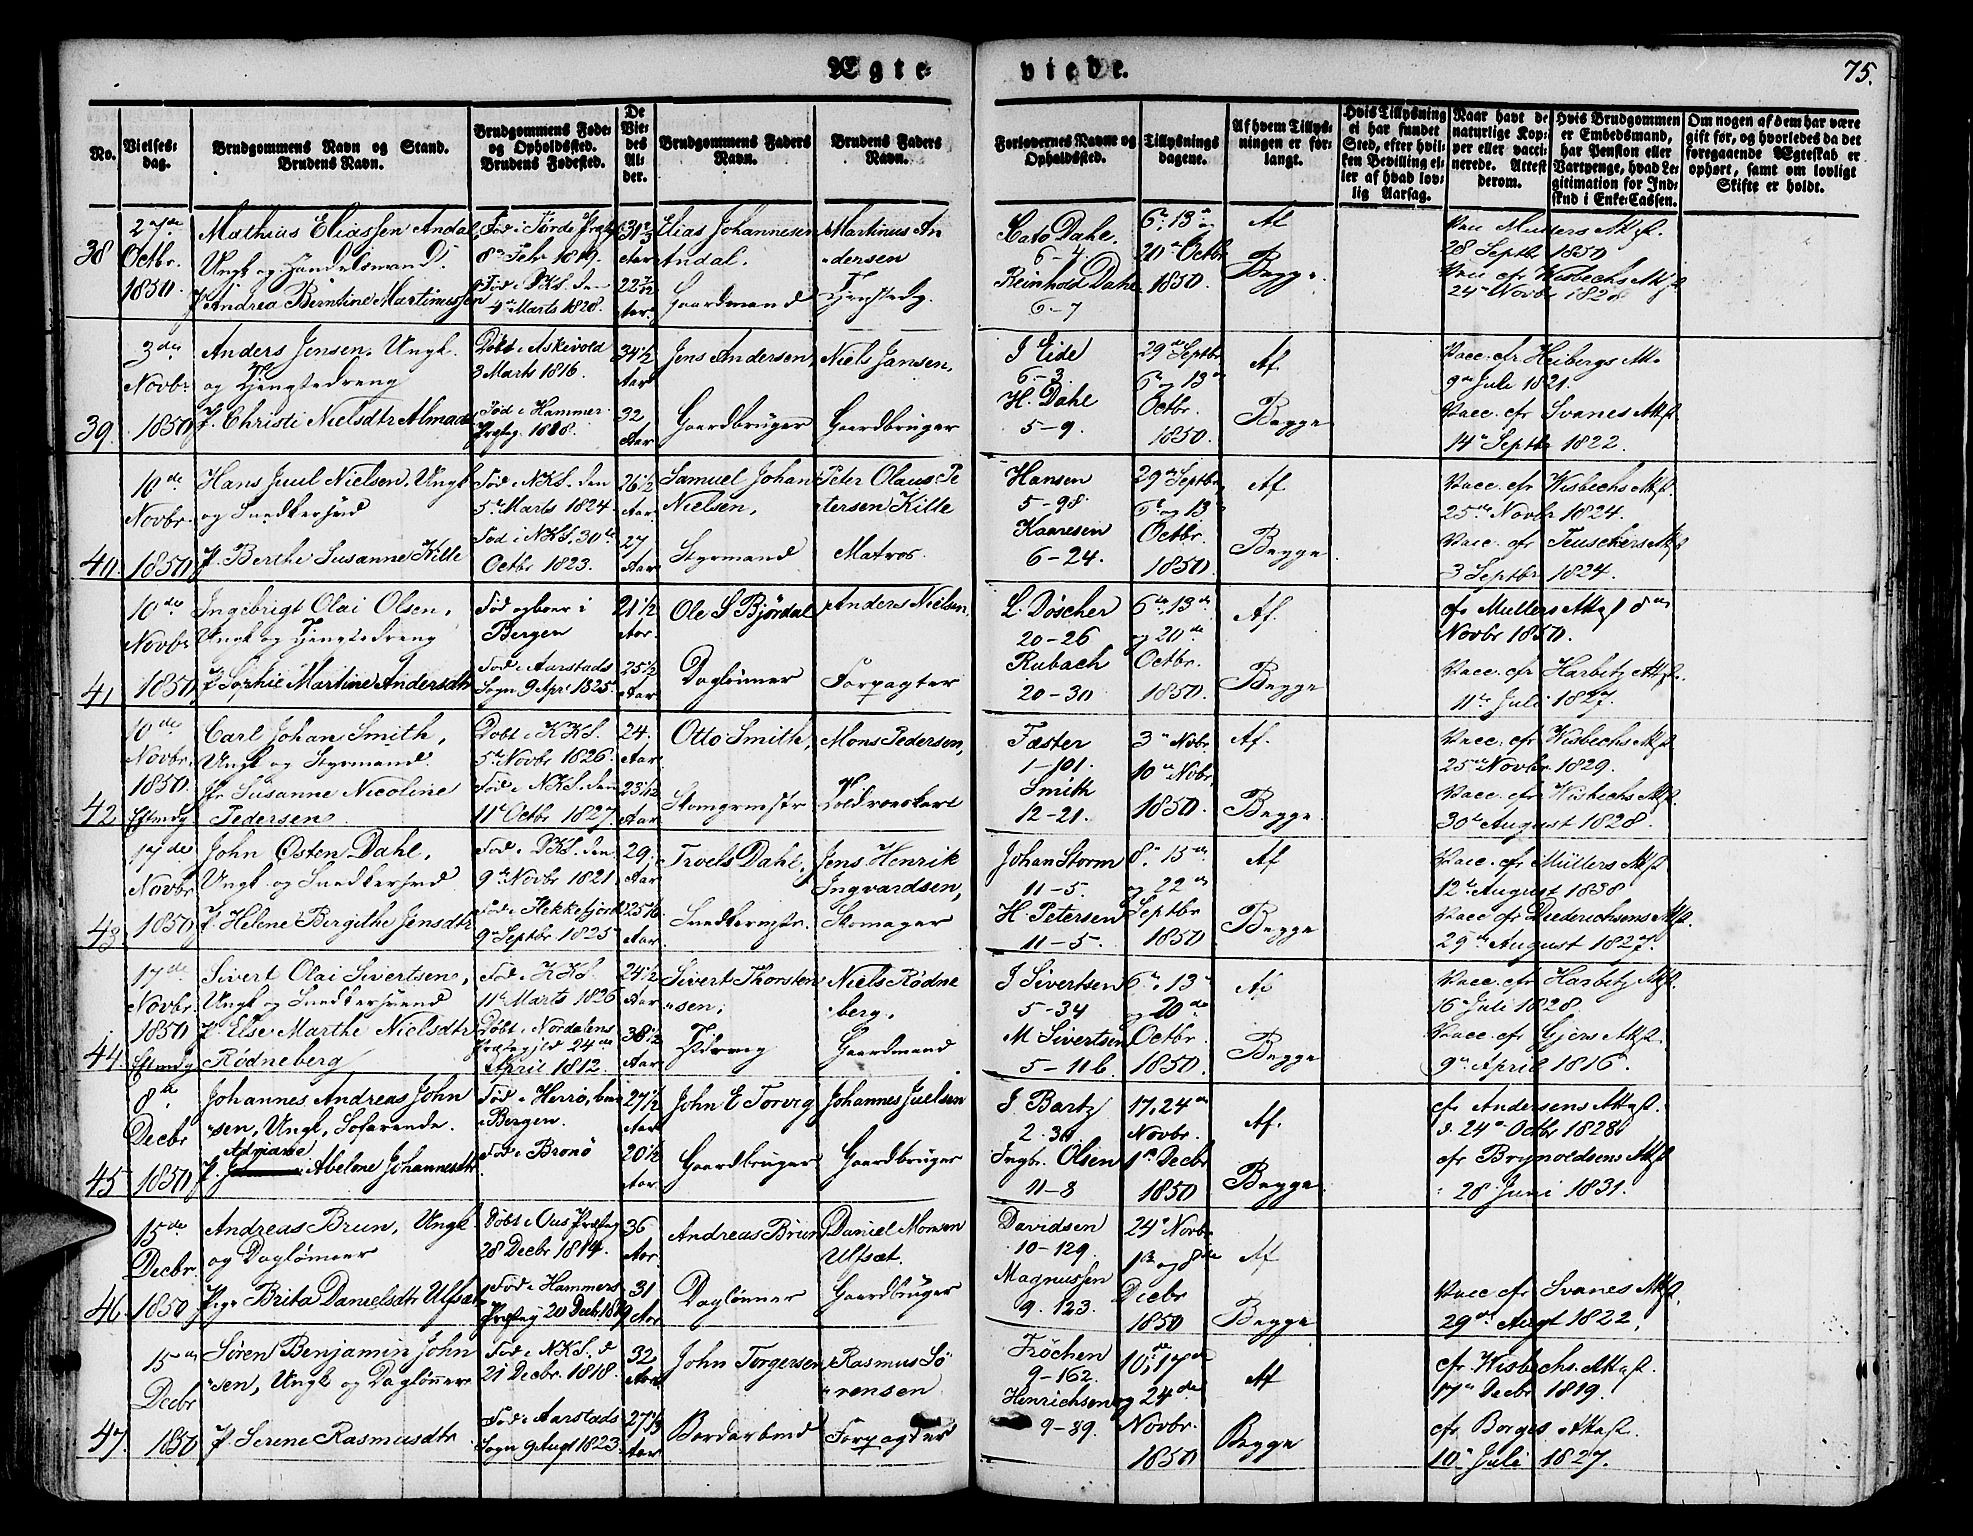 Ægte-
viede.
75.
No.
Vielses-
dag.
Brudgommens Navn og Stand.
Brudens Navn.
Brudgommens Føde-
og Opholdssted.
Brudens Fødested.
De
Vie-
des
Al-
der.
Brudgommens Faders
Navn.
Brudens Faders
Navn.
Forlovernes Navne og
Opholdssted.
Tillysnings
dagene.
Af hvem Tillys-
ningen er for-
langt.
Hvis Tillysning
ei har fundet
Sted, efter hvil-
ken Bevilling el-
ler af hvad lov-
lig Aarsag.
Naar havt de
naturlige Kop-
per eller vacci-
nerede. Attest
derom.
Hvis Brudgommen
er Embedsmand,
har Pension eller
Vartpenge, hvad Le-
gitimation for Ind-
skud i Enke-Cassen.
Om nogen af dem har være
gift før, og hvorledes da det
foregaaende Ægteskab er
ophørt, samt om lovligt
Skifte er holdt.
38
27de
Octbr.
1850.
Mathius Eliassen Andal
Ungk og Handelsmand.
P. Andrea Berntine Martinussen
Fød i Førde Præstg
8de Febr 1819.
Fød i DKS. den
4de Marts 1828.
Aar
22 7/12
Aar.
Elias Johannesen
Andal.
Gaardmand
Martinus An
dersen
Cato Dahl.
6-4
Reinhold Dahl
6-7
6te 13de
20de Octbr
1850.
Af
Begge.
Vac Mullers Attest.
28 Septbr 1850
Vac cfr Wisbechs Attest
24de Novbr 1828
39.
3die
Novbr
1850
Anders Jensen, Ungk.
og Tjenstedreng
P. Christi Nielsdtr Almaas
Døbt i Askevold
3 Marts 1816.
Fød i Hammer
Præstg. 1818.
34 1/2
Aar
32
Aar
Jens Andersen,
Gaardbruger
Niels Jansen,
Gaardbruger
J Eide
6-3.
H. Dahl
5-9.
29de Septbr
6te og 13de
Octbr.
1850.
Af
Begge
Vacc. cfr Heibergs Att.
9de Juli 1821.
Vacc. cfr Svanes Attest
14de Septbr 1822.
40
10de
Novbr.
1850
Hans Juul Nielsen, Ungk
og Snedkersvd
P. Berthe Susanne Kille
Fød i NKS. den
5te Marts 1824.
Fød i NKS. 30te
Octbr 1823.
26 1/2
Aar.
27
Aar
Samuel Johan
Nielsen,
Styrmand
Peter Olaus Pe
tersen Kille
Matros.
Hansen
5-98.
Kaaresen
6-24.
29de Septbr
6te og 13de
Octbr.
1850
Af
Begge
Vacc. cfr Wisbechs Attest.
25de Novbr 1824.
Vacc. cfr Teuschers Attest
3 Septbr 1824.
41
10de
Novbr
1850
Ingebrigt Olai Olsen,
Ungk og Tjenstedreng
P. Sophie Martine Andersdtr
Fød og boer i
Bergen
Fød i Aarstads
Sogn 9 Apr. 1825.
21 1/2
Aar.
25 1/2
Aar
Ole S Bjørdal
Dagleiner
Anders Nielsen.
Forpagter
L. Döscher
20-26
Rubach
20-30
6te 13de
og 20de
Octbr.
1850.
Af.
Begge
cfr Mullers Attest 8de
Novbr 1850.
Vacc. cfr Harbitz Attest.
11te Juli 1827.
42
10de
Novbr.
1850.
Eftmdg
Carl Johan Smith,
Ungk og Styrmand.
Jfr Susanne Nicoline
Pedersen
Døbt i KKS.
5te Novbr 1826.
Fød i NKS. den
11te Octbr 1827.
24.
Aar.
23 1/2
Aar
Otto Smith,
Mons Pedersen,
Toldroerskarl
Fæster
1-101.
Smith
12-21.
3de Novbr
10de Novbr
1850.
Af.
Begge.
Vacc. cfr Wisbechs Attest
25de Novbr 1829.
Vacc. cfr Wisbechs Attest.
30te August 1828.
43
17de
Novbr
1850
John Osten Dahl,
Ungk og Snedkersvd
P. Helene Bergithe Jensdtr
Fød i DKS. den
9de Novbr 1821
Fød i Flekkefjord
9de Septbr 1825
29
Aar.
Aar.
Troels Dahl,
Snedkermstr.
Jens Henrik
Ingvardsen,
Skomager
Johan Storm
11-5.
H. Petersen
11-5.
8de 15de
og 22de
Septbr
1850
Af
Begge
Vacc. cfr Müllers Attest
12te August 1838.
Vacc. cfr Diederichsens Attest.
29de August 1827.
44
17de
Novbr.
1850
Eftmdg
Sivert Olai Sivertsen,
Ungk og Snedkersvend
P. Else Marthe Nielsdtr
Rødneberg
Fød i KKS.
11te Marts 1826
Døbt i Nordalens
Præstegjeld 24de
April 1812.
24 1/2
Aar
38 1/2
Aar.
Sivert Thorsten
sen,
Niels Rødne
berg.
Gaardmand
J Sivertsen
5-34
M Sivertsen
5-116.
6te 13de
og 20de
Octbr.
1850.
Af
Begge
Vacc. cfr Harbitz Attest.
16de Juli 1828.
Vacc. cfr Gjers Attest.
9de April 1816.
45
8de
Decbr
1850
Johannes Andreas John
sen, Ungk, Søfarende.
Adriane
P. Abelone Johannesdtr
Fød i Herrø, boer
i Bergen.
Fød i Bronø
27 1/2
Aar
20 1/2
Aar.
John E Torvig
Gaardbruger
Johannes Juelsen
Gaardbruger
J. Bartz
2.30.
Ingbr. Olsen
11-8
17, 24de
Novbr.
1ste Decbr
1850
Af.
Begge
cfr Andersens Attest.
d. 24de Octbr 1828.
cfr Brynoldsens Attest
28 Juni 1831.
46
15de
Decbr.
1850
Andreas Brun, Ungk
og Daglønner
Pige Brita Danielsdtr Ulfsæt
Døbt i Ous Præstg
28 Decbr 1814.
Fød i Hammers
Præsteg 20 Decbr. 1819
36
Aar.
31
Aar
Andreas Brun
Daglønner
Daniel Monsen
Ulfsæt.
Gaardbruger
Davidsen
10-129.
Magnussen
9.123.
24de Novbr
1ste og 8de
Decbr
1850
Af
Begge
Vacc cfr Svanes Attest.
29de Augt 1822,
47.
15de
Decbr
1850
Søren Benjamin John
sen, Ungk og Daglønner
P Serene Rasmusdtr
Fød i NKS. d
21 Decbr. 1818.
Fød i Aarstads
Sogn 9 Augt 1823.
32
Aar
Aar.
John Torgersen
Bordarbeid
Rasmus Sö
rensen
Forpagter
Fröchen
9-162.
Henrichsen
9-89.
10, 17de
og 24de
Novbr.
1850
Af
Begge
cfr. Wisbechs. Attest.
17de Decbr 1819.
cfr. Borges Attest.
10de Juli 1827.